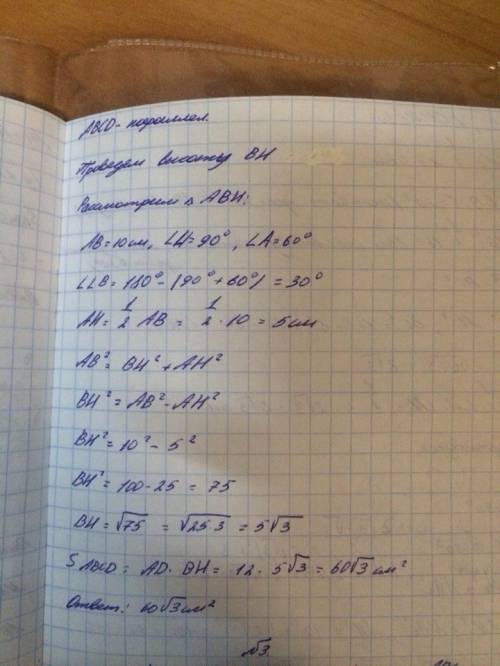 ABCD - параллел.
Проведем высоту BH
Рассмотрим Δ ABH:
AB = 10 см, ∠H = 90°, ∠A = 60°
∠B = 180° - (90° + 60°) = 30°
AH = 1/2 AB = 1/2 · 10 = 5 см
AB² = BH² + AH²
BH² = AB² - AH²
BH² = 10² - 5²
BH² = 100 - 25 = 75
BH = √75 = √25·3 = 5√3
S ABCD = AD · BH = 12 · 5√3 = 60√3 см²
Ответ: 60√3 см²
√3